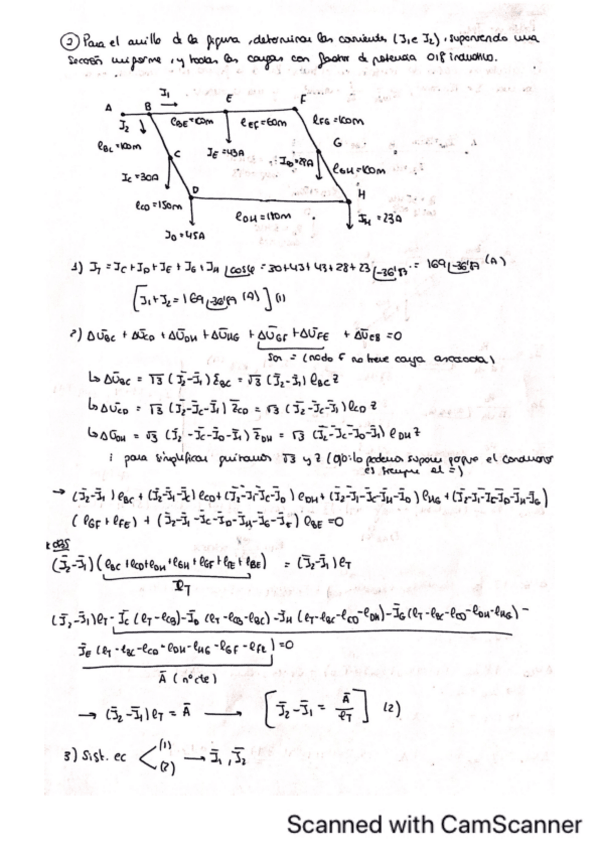 ② Para el anillo de la figura, determinar las corrientes (I₁ e I₂), suponiendo una
sección uniforme, y todas las cargas con factor de potencia 0'8 inductivo.
I₁
A B E F
I₂ l_BE = l_EF = 60m l_FG = 100m
l_BC = 100m
C I_E = 43A G
I_G = 28A l_GH = 100m
I_C = 30A
D H
l_CD = 150m l_DH = 110m I_H = 23A
I_D = 45A
1) I_T = I_C + I_D + I_E + I_G + I_H = 30+45+43+28+23 = 169 |-36'87 (A)
[I₁ + I₂ = 169 |-36'87 (A)] (1)
2) ΔU_BC + ΔU_CD + ΔU_DH + ΔU_HG + ΔU_GF + ΔU_FE + ΔU_EB = 0
Son = (nodo F no tiene carga asociada)
↳ ΔU_BC = √3 (I₂-I₁) Z_BC = √3 (I₂-I₁) l_BC Z
↳ ΔU_CD = √3 (I₂-I_C-I₁) Z_CD = √3 (I₂-I_C-I₁) l_CD Z
↳ ΔU_DH = √3 (I₂-I_C-I_D-I₁) Z_DH = √3 (I₂-I_C-I_D-I₁) l_DH Z
para simplificar quitamos √3 y Z (solo podemos suponer porque el conductor
es siempre el =)
→ (I₂-I₁) l_BC + (I₂-I₁-I_C) l_CD + (I₂-I₁-I_C-I_D) l_DH + (I₂-I₁-I_C-I_H-I_D) l_HG + (I₂-I₁-I_C-I_D-I_H-I_G)
(l_GF + l_FE) + (I₂-I₁-I_C-I_D-I_H-I_G-I_E) l_BE = 0
(I₂-I₁)(l_BC + l_CD + l_DH + l_GH + l_GF + l_FE + l_BE) = (I₂-I₁) l_T
l_T
(I₂-I₁) l_T - I_C (l_T-l_CB) - I_D (l_T-l_CD-l_BC) - I_H (l_T-l_BC-l_CD-l_DH) - I_G (l_T-l_BC-l_CD-l_DH-l_HG) -
I_E (l_T-l_BC-l_CD-l_DH-l_HG-l_GF-l_FE) = 0
A (nº cte)
→ (I₂-I₁) l_T = A → [I₂-I₁ = A/l_T] (2)
3) Sist. ec < (1) (2) → I₁, I₂
Scanned with CamScanner